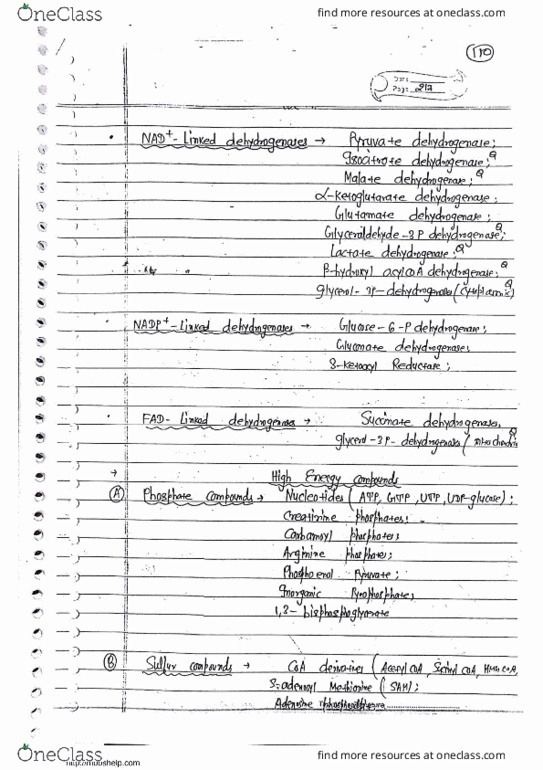 OneClass
find more resources at oneclass.com
110
Page: 217
NAD+- Linked dehydrogenases → Pyruvate dehydrogenase;
Isocitrate dehydrogenase; Q
Malate dehydrogenase; Q
α-Ketoglutarate dehydrogenase;
Glutamate dehydrogenase;
Glyceraldehyde-3P dehydrogenase; Q
Lactate dehydrogenase; Q
β-hydroxyl acylcoA dehydrogenase; Q
glycerol-3P-dehydrogenase (cytoplasmic)
NADP+-Linked dehydrogenases → Glucose-6-P dehydrogenase;
Gluconate dehydrogenase;
3-ketoacyl Reductase;
FAD- Linked dehydrogenase → Succinate dehydrogenase,
glycerol-3P-dehydrogenase (mitochondria Q
→ High Energy compounds
(A) Phosphate compounds → Nucleotides (ATP, GTP, UTP, UDP-glucose);
Creatinine phosphates;
Carbamoyl phosphates;
Arginine phosphates;
Phosphoenol Pyruvate;
Inorganic Pyrophosphates;
1,2- bisphosphoglycerate
(B) Sulfur compounds → CoA derivatives (Acetyl CoA, Succinyl CoA, HMG CoA,
S-adenosyl Methionine (SAM);
Adenosine
OneClass
find more resources at oneclass.com